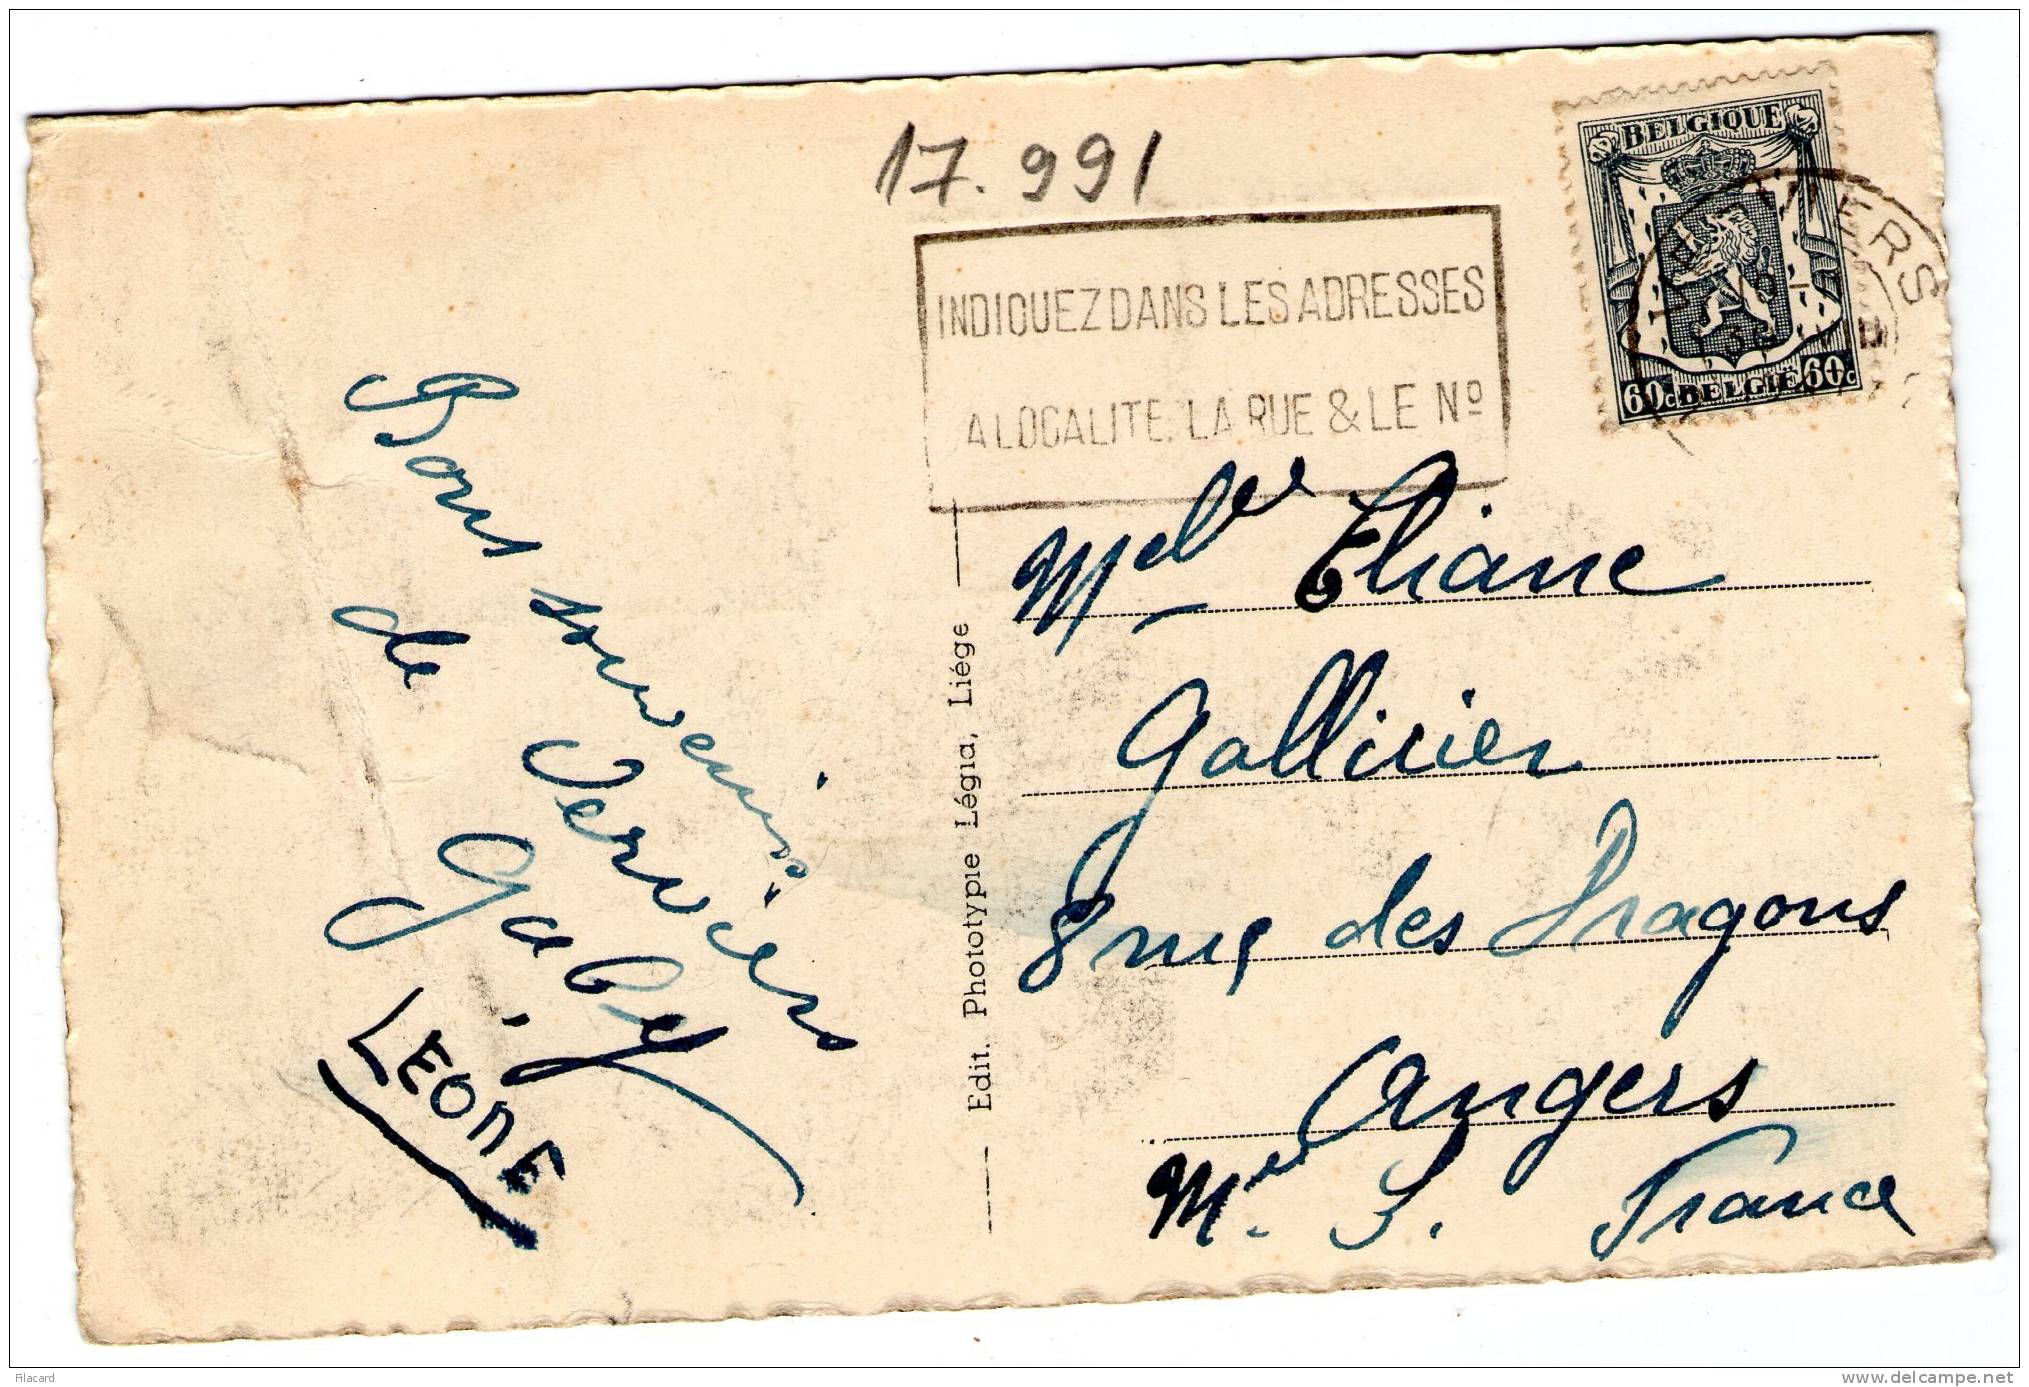 17.991
BELGIQUE
60c BELGIË 60c
VERS
INDIQUEZ DANS LES ADRESSES
A LOCALITE, LA RUE & LE Nº
Bons souvenirs
de Verviers
Gaby
LEONE
Edit. Phototypie Légia, Liége
Melle Eliane
Gallicier
8 rue des Dragons
Angers
M. et L. France
Filacard
www.delcampe.net